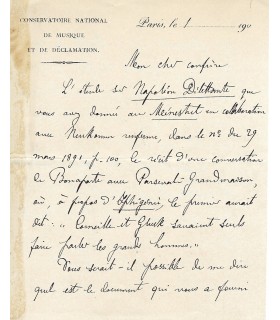 CONSERVATOIRE NATIONAL
DE MUSIQUE
ET DE DÉCLAMATION.
Paris, le 1 190
Mon cher confrère
L'étude sur Napoléon Dilettante que
vous avez donnée au Ménestrel en collaboration
avec Neukomm renferme, dans le no du 29
mars 1891, p. 100, le récit d'une conversation
de Bonaparte avec Parseval-Grandmaison,
où, à propos d'Iphigénie, le premier aurait
dit : "Corneille et Gluck savaient seuls
faire parler les grands hommes."
Vous serait-il possible de me dire
quel est le document qui vous a fourni